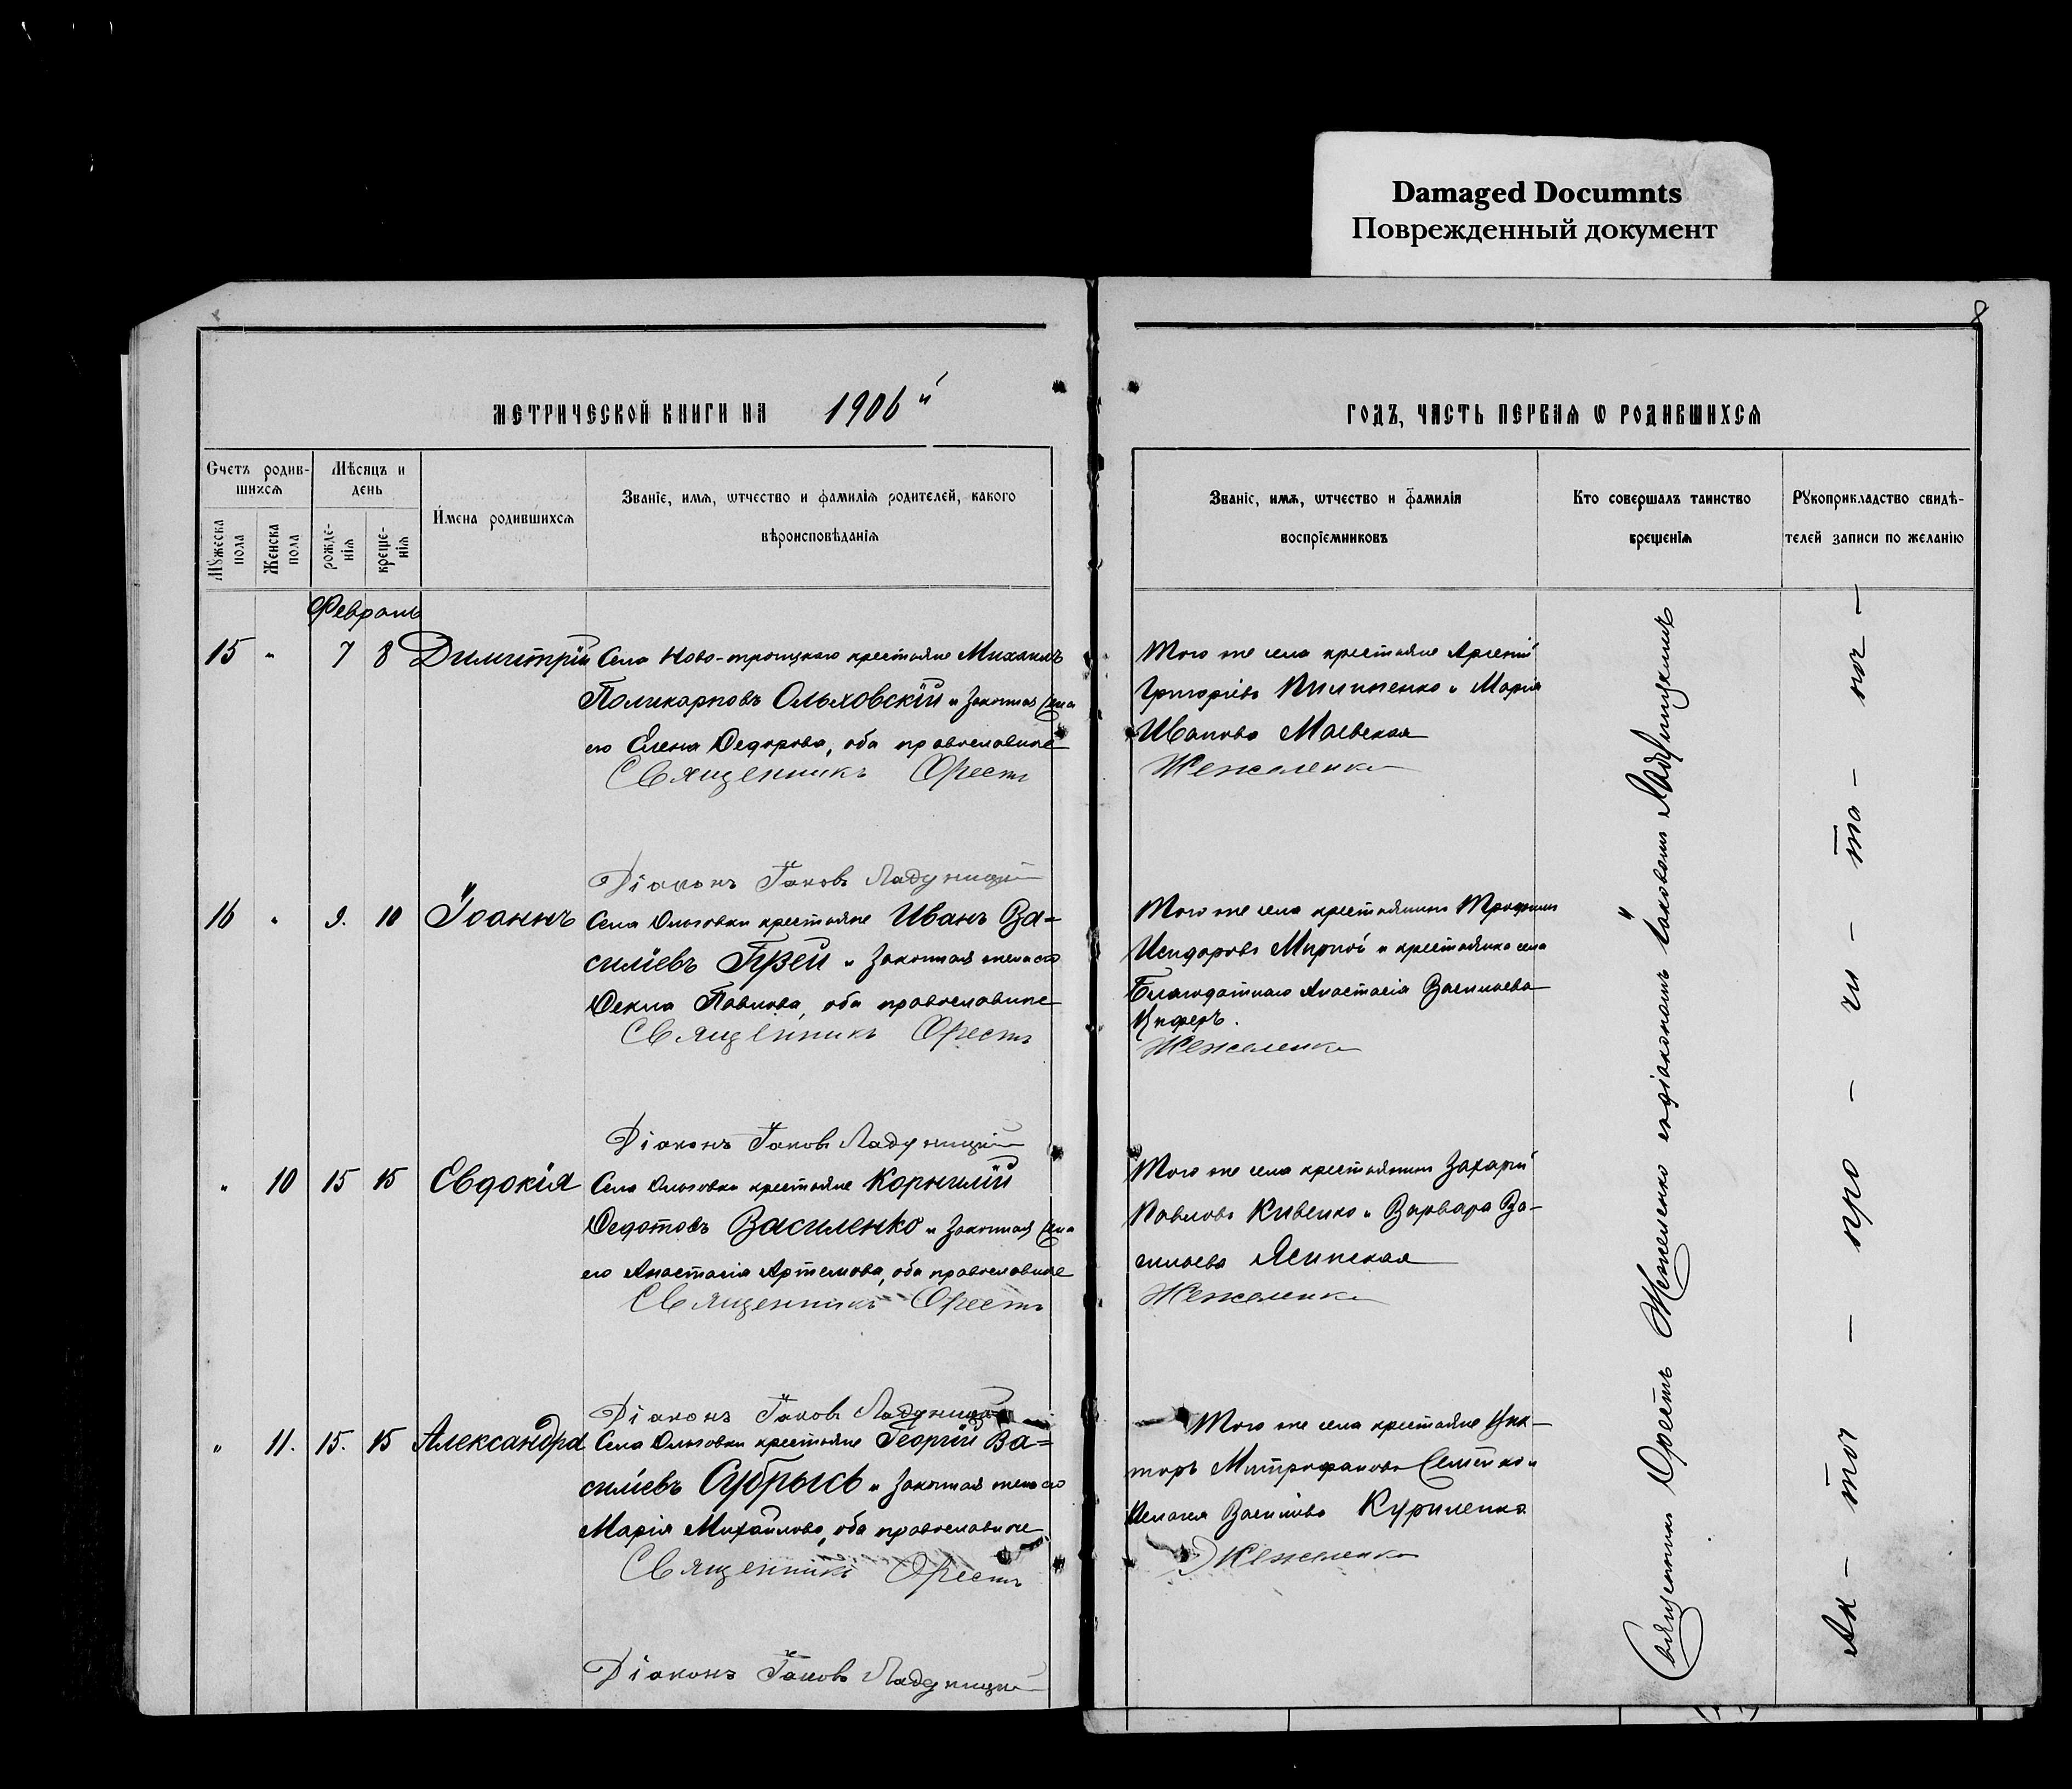 Damaged Documnts
Поврежденный документ
8
МЕТРИЧЕСКОЙ КНИГИ НА 1906й
ГОДЪ, ЧАСТЬ ПЕРВАѦ Ѡ РОДИВШИХСѦ
Счетъ родив-
шихсѧ
Мѣсяцъ и
день
Мꙋжеска
пола
Женска
пола
рожде-
нїѧ
креще-
нїѧ
Имена родившихсѧ
Званїе, имѧ, ѡтчество и фамилїѧ родителей, какого
вѣроисповѣданїѧ
Званїе, имѧ, ѡтчество и фамилїѧ
воспрїемниковъ
Кто совершалъ таинство
крещенїѧ
Рꙋкоприкладство свидѣ-
телей записи по желанїю
Февраль
15 " 7 8 Димитрій Села Ново-троицкаго крестьяне Михаилъ
Поликарповъ Ольховскій и законная жена
его Елена Ѳедорова, оба православные
Священникъ Орестъ
Діаконъ Іаковъ Ладуницкій
Того же села крестьяне Арсеній
Григоріевъ Пилипенко и Марія
Иванова Маевская
Жежеленко
16 " 9. 10 Іоаннъ Села Ольговки крестьяне Иванъ Ва=
силіевъ Гузей и законная жена его
Ѳекла Павлова, оба православные
Священникъ Орестъ
Діаконъ Іаковъ Ладуницкій
Того же села крестьянинъ Трофимъ
Исидоровъ Мирной и крестьянка села
Благодатнаго Анастасія Васильева
Жежеленко
" 10 15 15 Евдокія Села Ольговки крестьяне Корнилій
Ѳедотовъ Василенко и законная жена
его Анастасія Артемова, оба православные
Священникъ Орестъ
Діаконъ Іаковъ Ладуницкій
Того же села крестьянинъ Захарій
Павловъ Кивенко и Варвара Ва-
сильева Ясинская
Жежеленко
" 11. 15. 15 Александра Села Ольговки крестьяне Георгій Ва=
силіевъ и законная жена его
Марія Михайлова, оба православные
Священникъ Орестъ
Діаконъ Іаковъ Ладуницкій
Того же села крестьяне Вик-
торъ Митрофановъ и
Пелагея Куриленко
Жежеленко
Священникъ Орестъ Жежеленко съ діакономъ Іаковомъ Ладуницкимъ